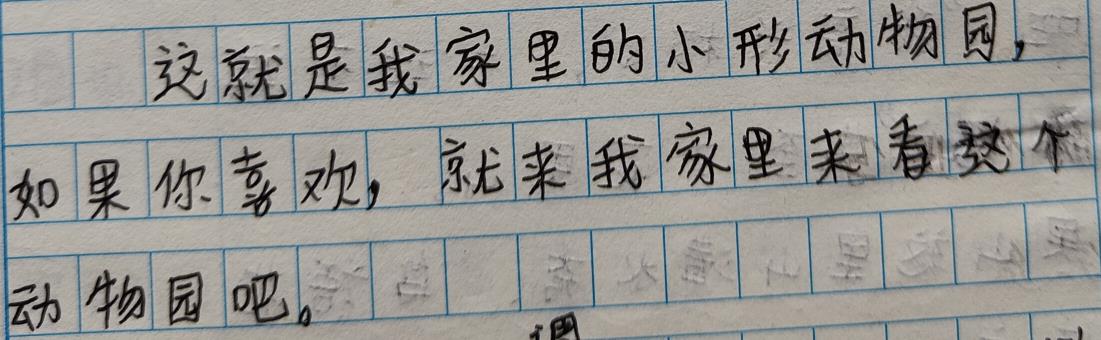 这就是我家里的小形动物园，
如果你喜欢，就来我家里来看这个
动物园吧。